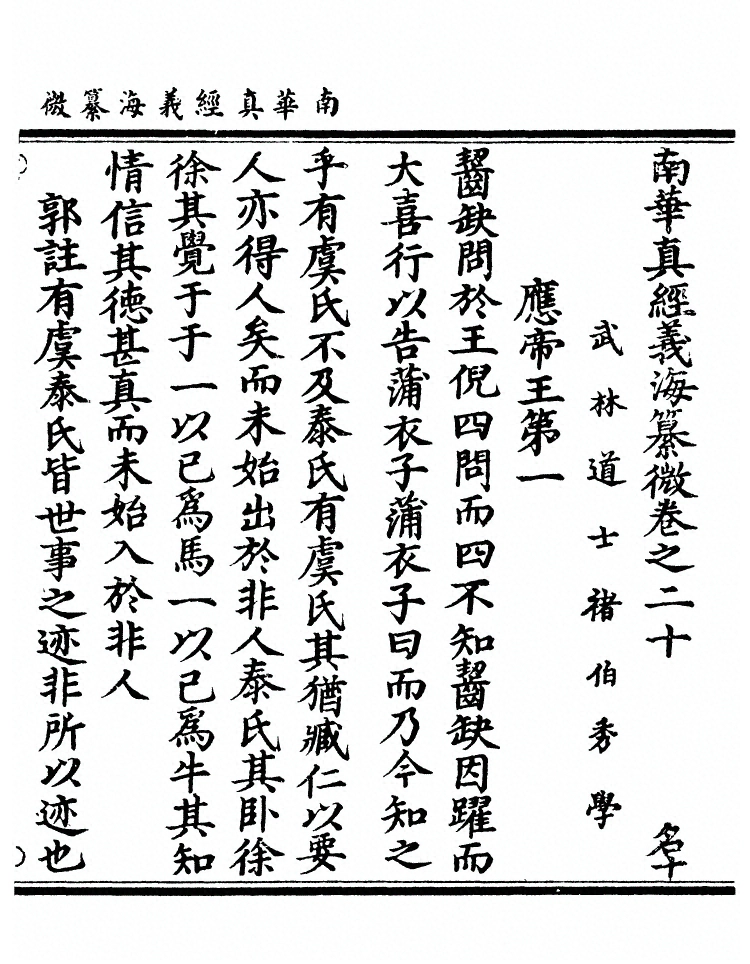 南華真經義海纂微
南華真經義海纂微卷之二十 名十
武林道士褚伯秀學
應帝王第一
齧缺問於王倪四問而四不知齧缺因躍而
大喜行以告蒲衣子蒲衣子曰而乃今知之
乎有虞氏不及泰氏有虞氏其猶臧仁以要
人亦得人矣而未始出於非人泰氏其卧徐
徐其覺于于一以已爲馬一以已爲牛其知
情信其德甚真而未始入於非人
郭註有虞泰氏皆世事之迹非所以迹也